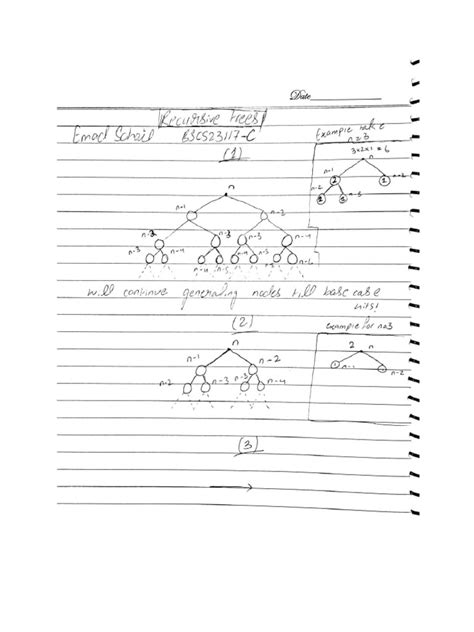 Date
Recursive Trees
Emad Sohail BSCS23117-C
(1)
Example take
n=3
3x2x1 = 6
n
n-1
n-2
2
2
2
2
n
n-1
n-2
n-2
n-3
n-3
n-4
n-3
n-4
n-4
n-5
n-4
n-5
n-5
n-6
will continue generating nodes till base case
hits!
(2)
Example for n=3
n
n-1
n-2
n-2
n-3
n-3
n-4
2
n
n-1
n-2
(3)